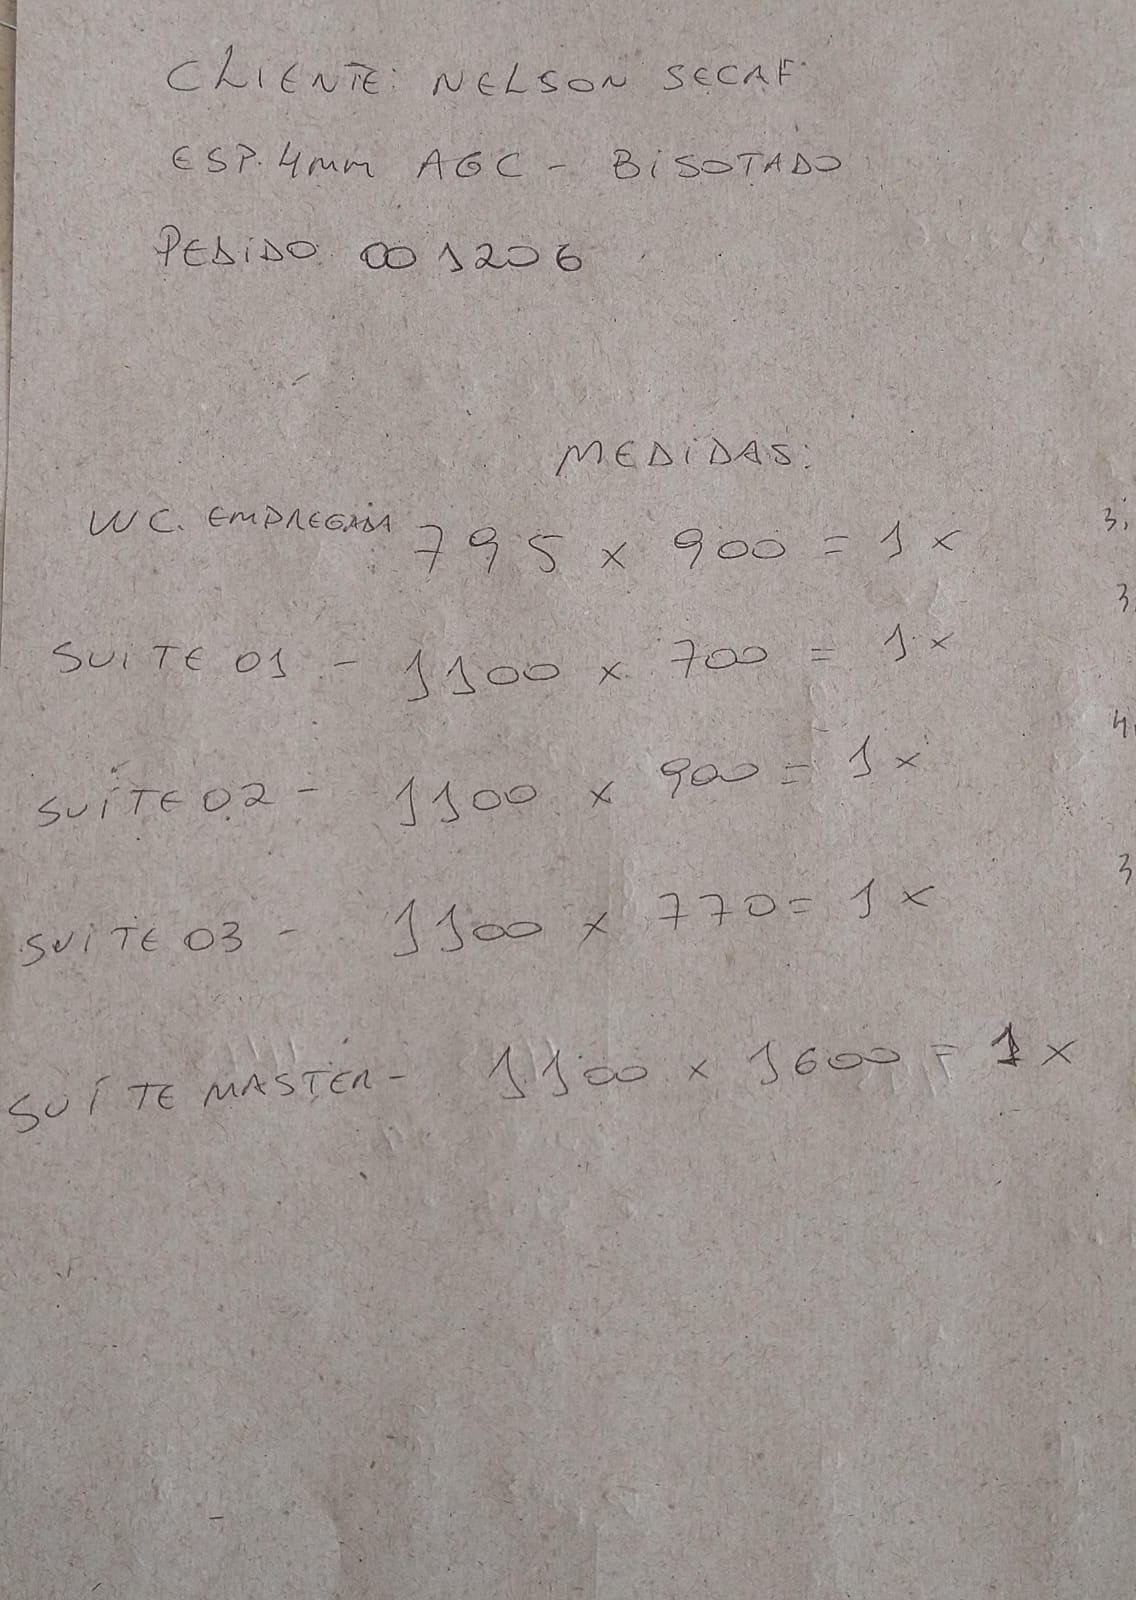 CLIENTE: NELSON SECAF
ESP. 4mm AGC - BISOTADO
PEDIDO 001206
MEDIDAS:
WC. EMPREGADA 795 x 900 = 1x
3,
SUITE 01 - 1100 x 700 = 1x
3,
SUÍTE 02 - 1100 x 900 = 1x
4,
SUITE 03 - 1100 x 770 = 1x
3
SUÍTE MASTER - 1100 x 1600 = 1x